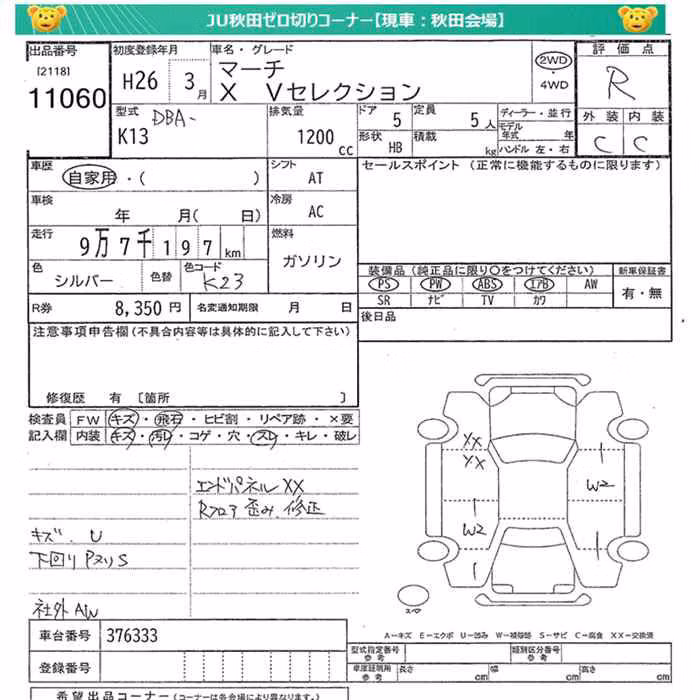 JU秋田ゼロ切りコーナー【現車：秋田会場】
出品番号
[2118]
11060
初度登録年月
H26 3月
車名・グレード
マーチ
X Vセレクション
2WD
・
4WD
評価点
R
外装 内装
C C
型式 DBA-
K13
排気量
1200 cc
ドア 5
定員 5人
形状 HB
積載 kg
ディーラー・並行
モデル年式 年
ハンドル 左・右
車歴
自家用・( )
シフト
AT
車検
年 月( 日)
冷房
AC
走行
9万7千197km
燃料
ガソリン
色
シルバー
色替
色コード
K23
R券 8,350円
名変通知期限 月 日
セールスポイント (正常に機能するものに限ります)
装備品 (純正品に限り○をつけてください)
PS PW ABS エアB AW
SR ナビ TV カワ
新車保証書
有・無
後日品
注意事項申告欄(不具合内容等は具体的に記入して下さい)
修復歴 有 [箇所 ]
検査員
記入欄
FW キズ・飛石・ヒビ割・リペア跡・×要
内装 キズ・汚レ・コゲ・穴・スレ・キレ・破レ
エンドパネルXX
Rフロア歪み、修正
キズ、U
下回りPヌリS
社外AW
XX
XX
W2
1
1
W2
1
1
スペア
A-キズ E-エクボ U-凹み W-補修跡 S-サビ C-腐食 XX-交換済
車台番号 376333
登録番号
型式指定番号
参考
類別区分番号
参考
車庫証明用
参考
長さ cm
幅 cm
高さ cm
希望出品コーナー(コーナーは各会場により異なります。)